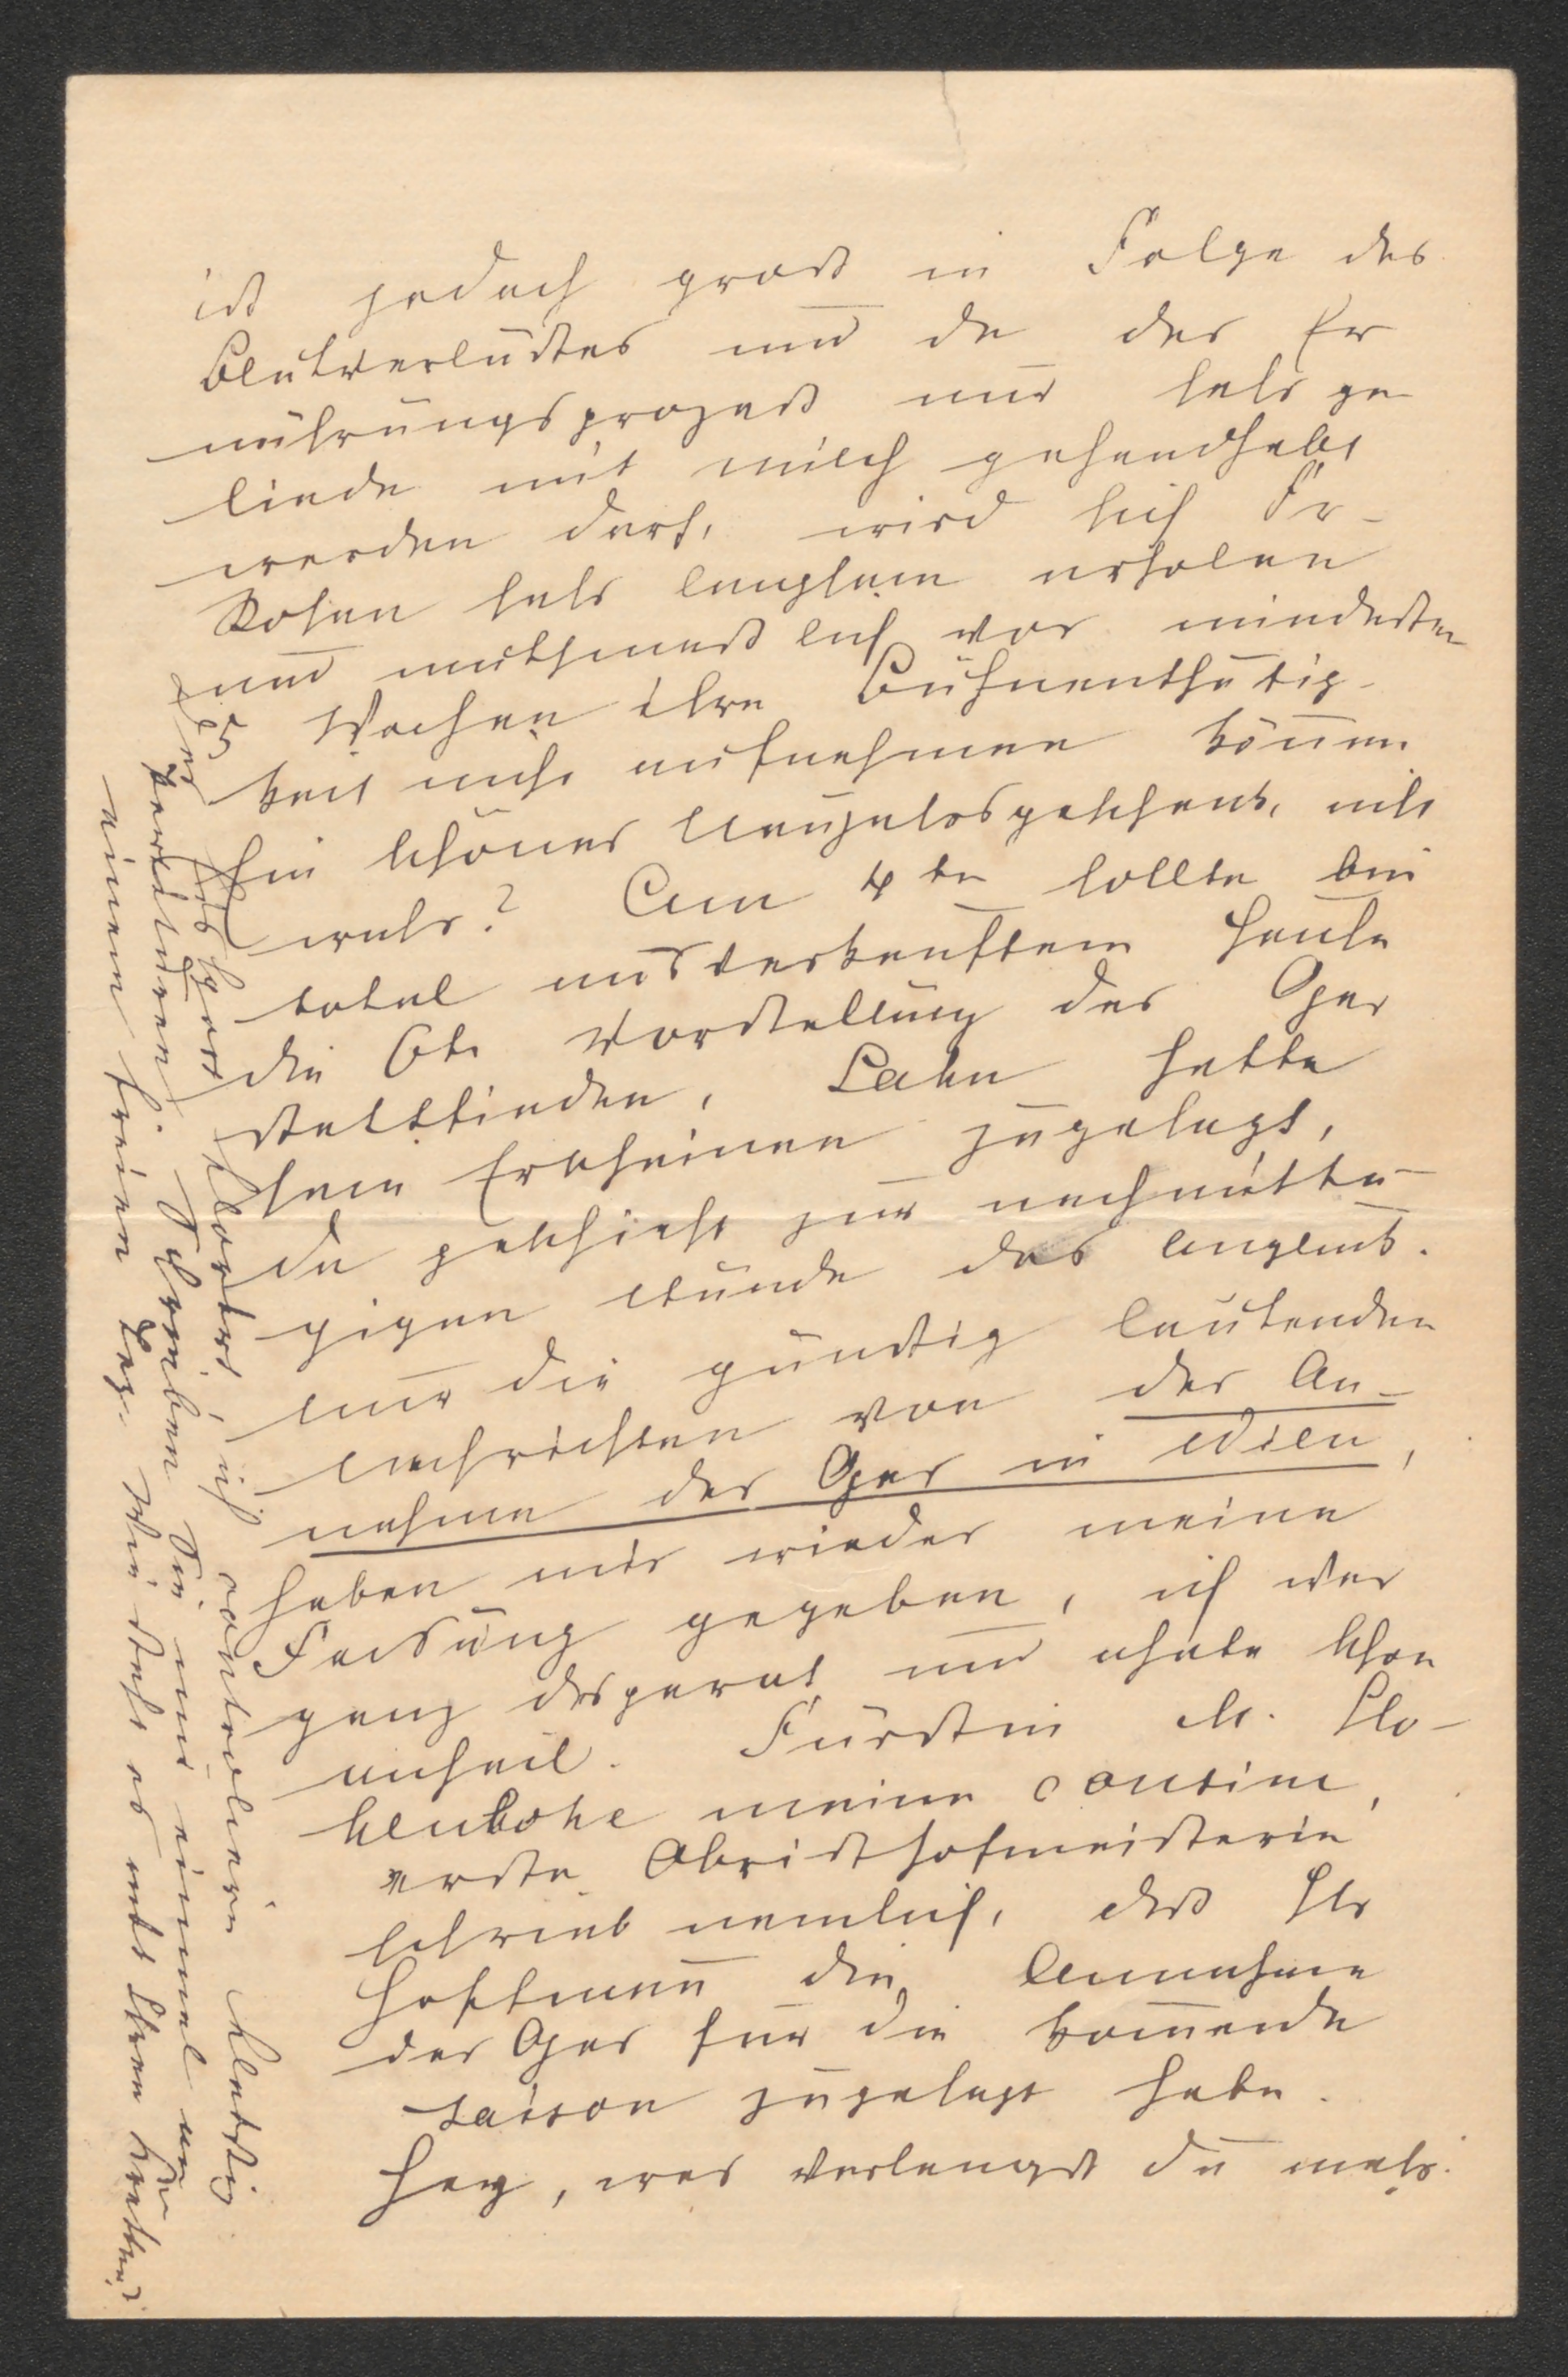 ist jedoch groß in Folge des
Blutverlustes und da der Er
nährungsprozeß nur sehr ge
linde mit Milch gehandhabt
werden darf, wird sich Fr-
Rosen sehr langsam erholen
und muthmaßlich vor mindesten
5 Wochen ihre Bühnenthätig-
keit nicht aufnehmen können
Ein schönes Neujahrsgeschenk, nicht
wahr? Am 4ten sollte bei
total ausverkauftem Hause
die 6te Vorstellung der Oper
stattfinden, hatte
sein Erscheinen zugesagt,
da geschieht zur nachmittä-
gigen Stunde das Unglück.
Nur die günstig lautenden
Nachrichten von der An-
nahme der Oper in Wien,
haben mir wieder meine
Fassung gegeben, ich war
ganz desperat und ahnte schon
Unheil. Fürstin M. Ho-
henlohe meine Cousine,
erste Obristhofmeisterin
schrieb nemlich, daß H
Hoffmann die Annahme
der Oper für die kommende
Saison zugesagt habe.
Herz, was verlangst du mehr.
ich
Partituren Schreiben Sie nur einmal an
einem freien Tag. Wie steht es mit Ihren